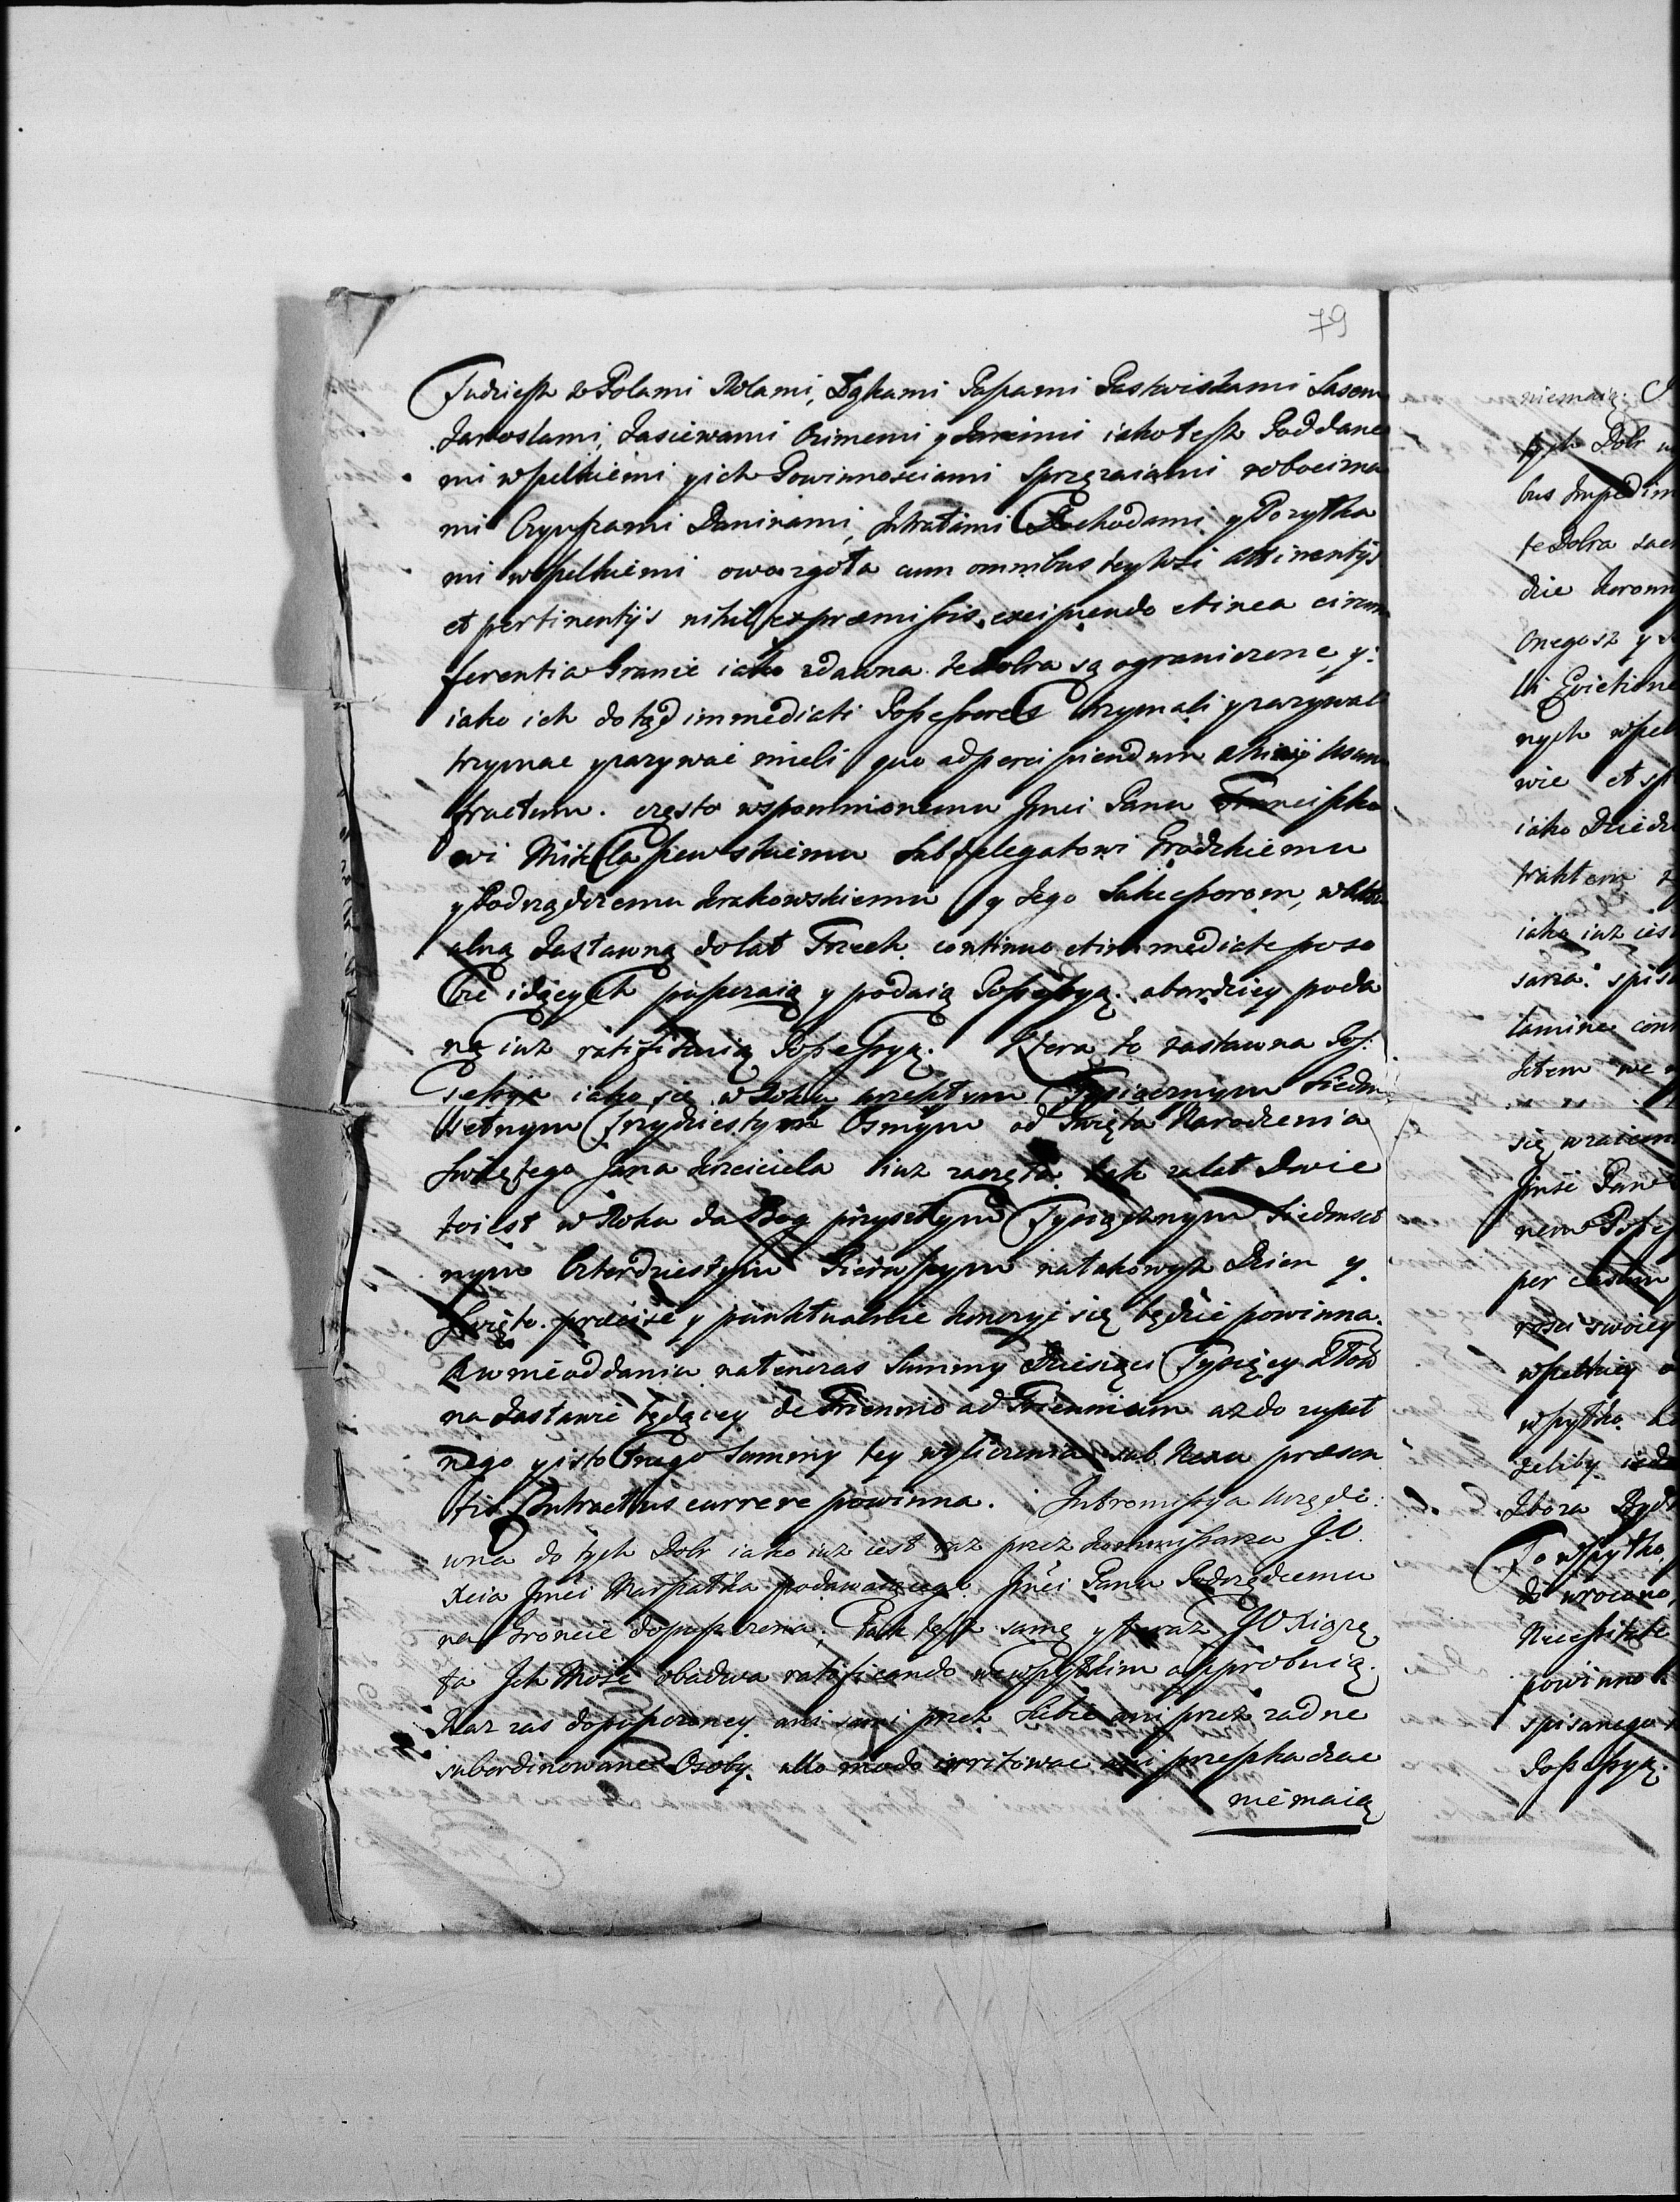 79
Tudzież z Polami Rolami, Łąkami Pasami Pastwiskami Lasem
Zaroslami, Zasiewami Ozimemi y Jaremi iako tesz Poddane
mi wszelkiemi y ich Powinnosciami Sprzęzaiami robocizna
mi Czynszami Daninami, Intratami Dochodami y Pozytka
mi wszelkiemi owo zgoła cum omnibus tey Wsi Attinentijs
et pertinentijs nihil ex præmissis excipiendo et in ea circum
ferentia Granic iako zdawna te Dobra są ograniczone, y
iako ich dotąd immediati Possessores trzymali y zazywali
trzymac y zazywać mieli quo ad percipiendum usum
fructum. często wspomnionemu Jmci Panu Franciszko
wi Subdelegatowi Grodzkiemu
y Podrządczemu Krakowskiemu y Jego Sukcessorom, w
alną Zastawną do lat Trzech continuo et immediate po so
bie idących puszczaią y podaią Possessyą. a bardziey poda
ną iuz ratifikuią Possessyą. Ktora to zastawna Pos
sessya iako się w Roku przeszłym Tysiącznym Siedm
setnym Trzydziestym Osmym od Swięta Narodzenia
Swiętego Jana Krzciciela iuz zaczęła tak za lat Dwie
to iest w Roku da Bog przyszłym Tysiącznym Siedmset
nym Czterdziestym Pierwszym na takowysz Dzien y
Swięto præcise y punktualnie konczyć się będzie powinna.
A w nieoddaniu natenczas Summy Dziesięci Tysięcy Złot
na Zastawie będącey de Triennio ad Triennium az do zupeł
nego y istotnego Summy tey wyliczenia sub Nexu præsen
tis Contractus currere powinna. Intromissya Urzędo
wna do tych Dobr iako iuz iest raz przez Kommissarza J.O.
Xcia Jmci Marszałka podawaiącego Jmci Panu Podrządczemu
na Groncie dopuszczona, tak tęsz samę y teraz JO Xiązę
ta Ich Mość obadwa ratificando we wszytkim approbuią
Raz zas dopuszczoney ani sami przez Siebie ani przez zadne
subordinowane Osoby ullo modo irritowac ani przeszkadzac
nie maią
niemaią
tych Dobr
bus Impedim
te Dobra
dzie
Onegosz y
li Evictione
nych wszel
wie et
iako Dziedz
traktem
iako iuz iest
sarza spis
tamine con
się wzaiem
Jmść Pan
nem Posses
per
rosci swoiey
wszelkiey
wszytko
zeliby
Zboza
To wszytko
do
Necessitate
powinno
spisanego
Possessyą.